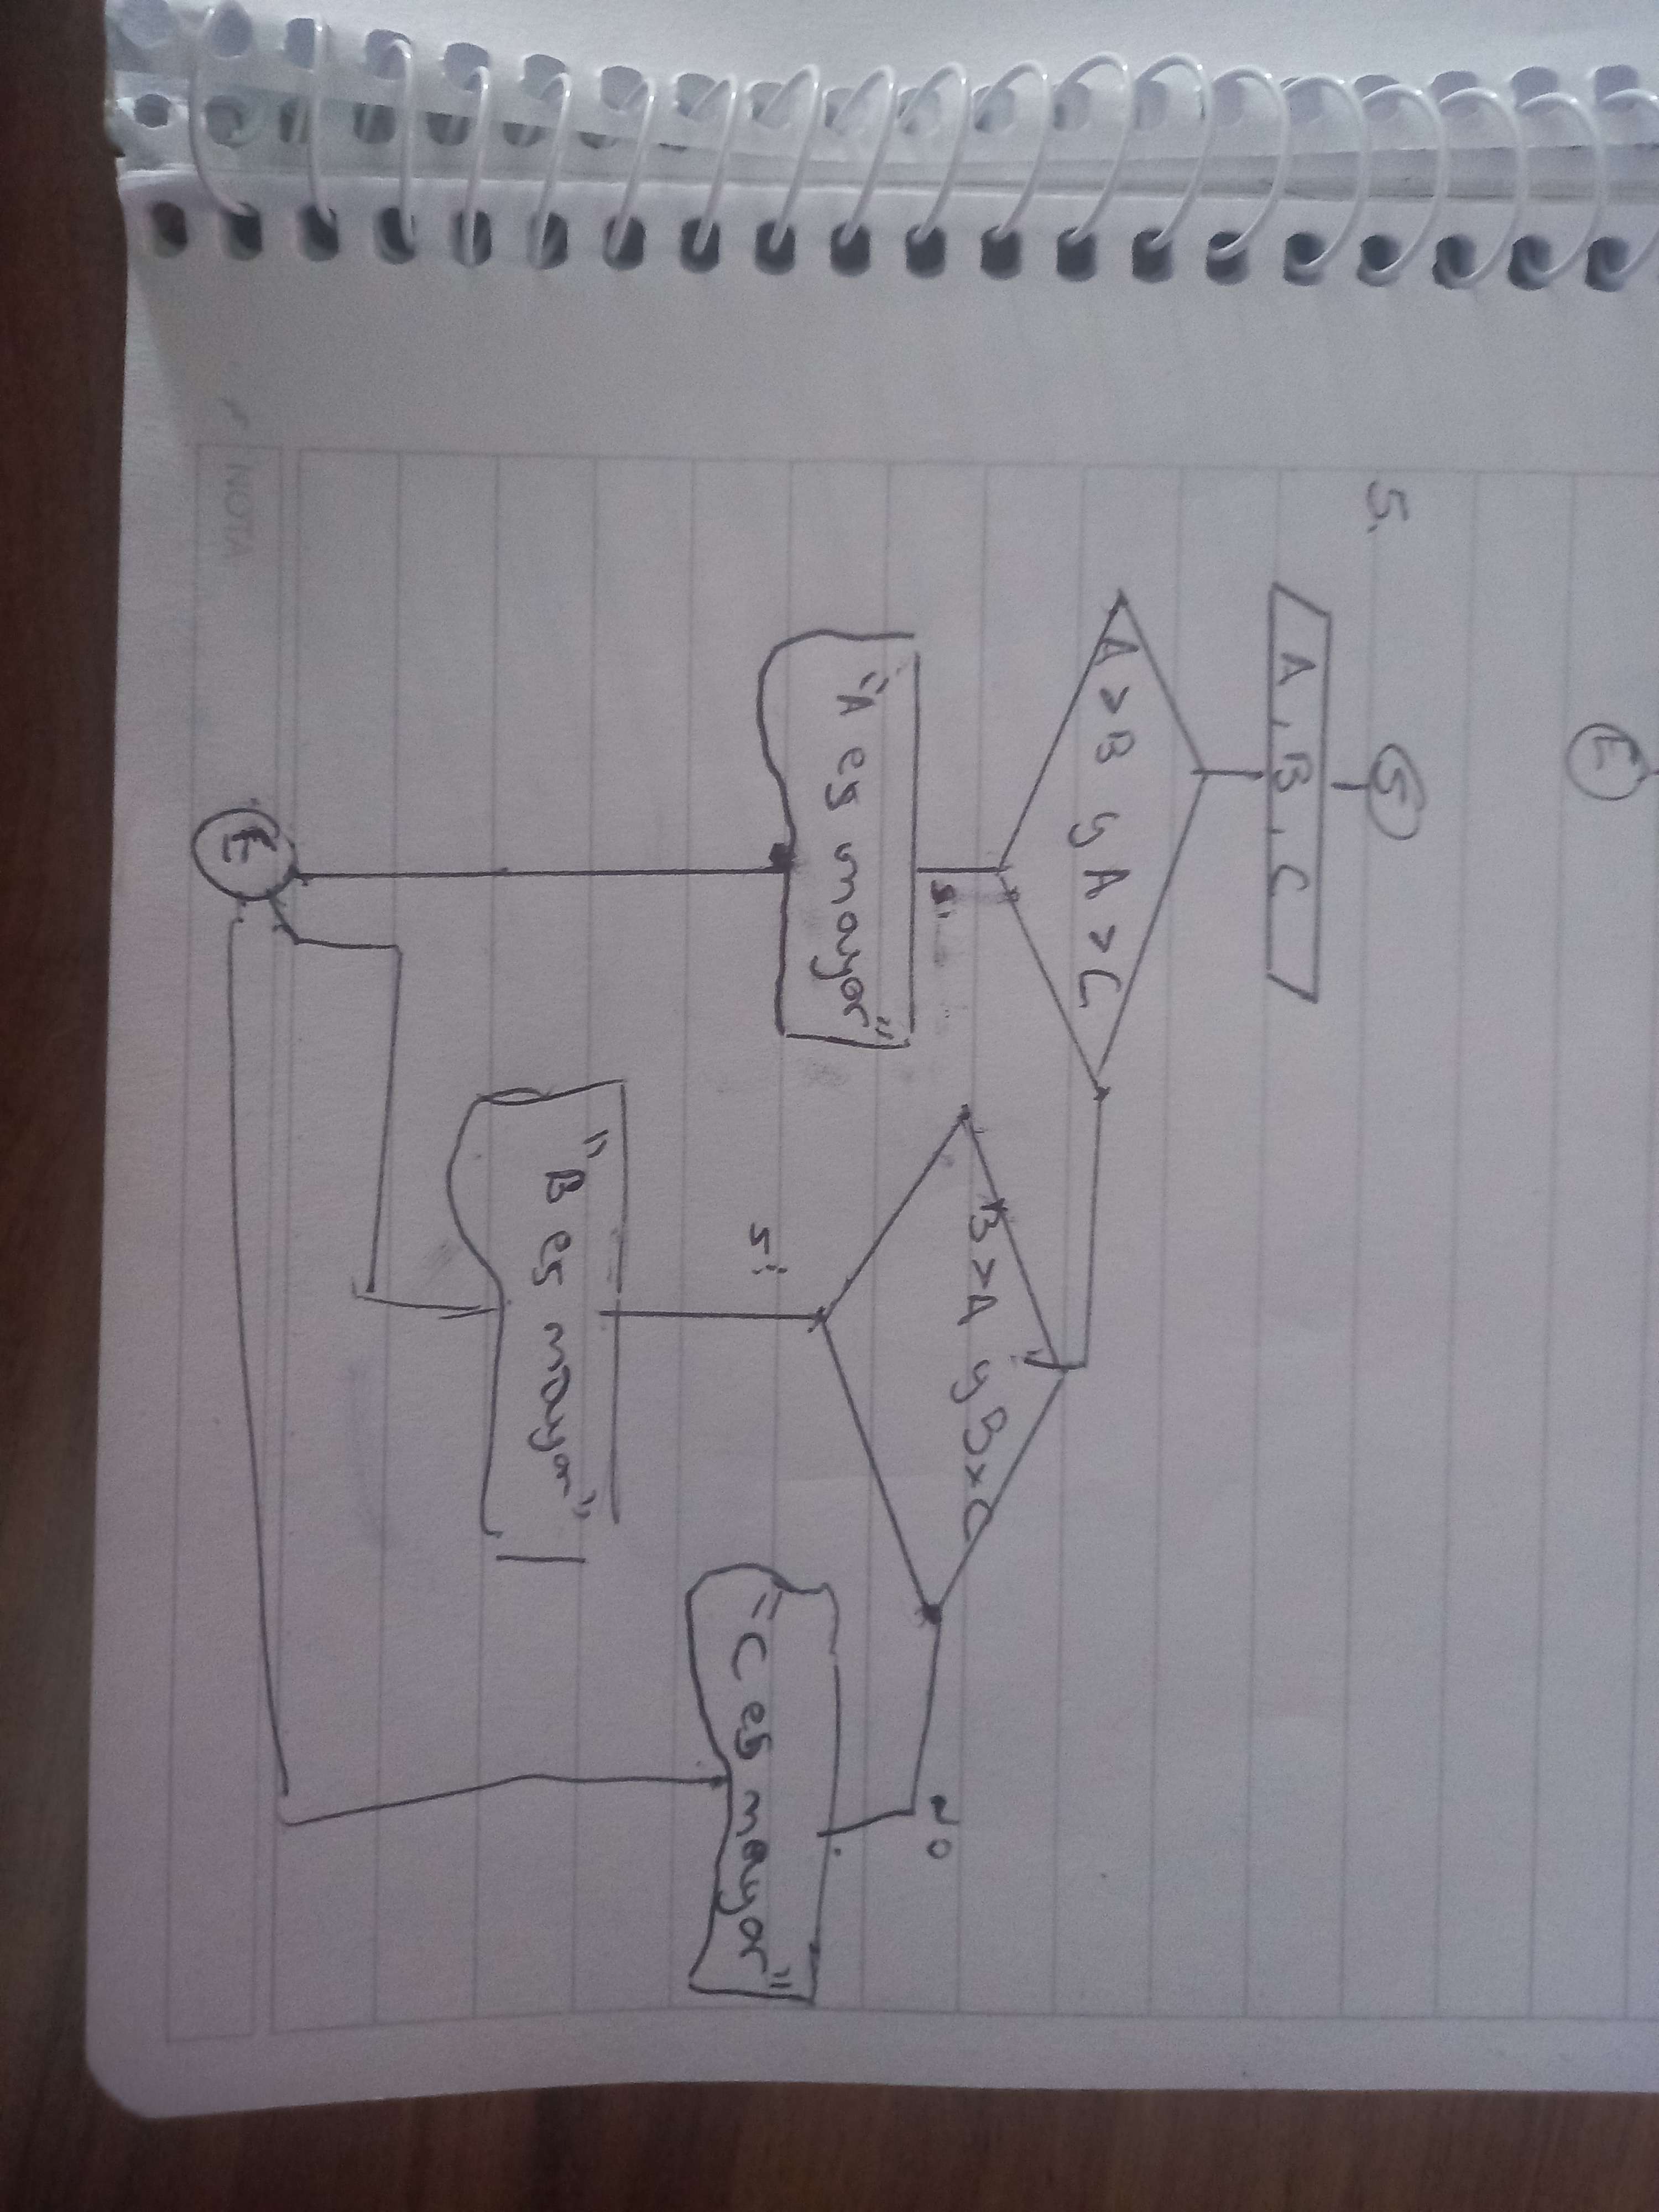 E
5.
S
A, B, C
A > B y A > C
si
"A es mayor"
B > A y B > C
si
"B es mayor"
NO
"C es mayor"
E
NOTA